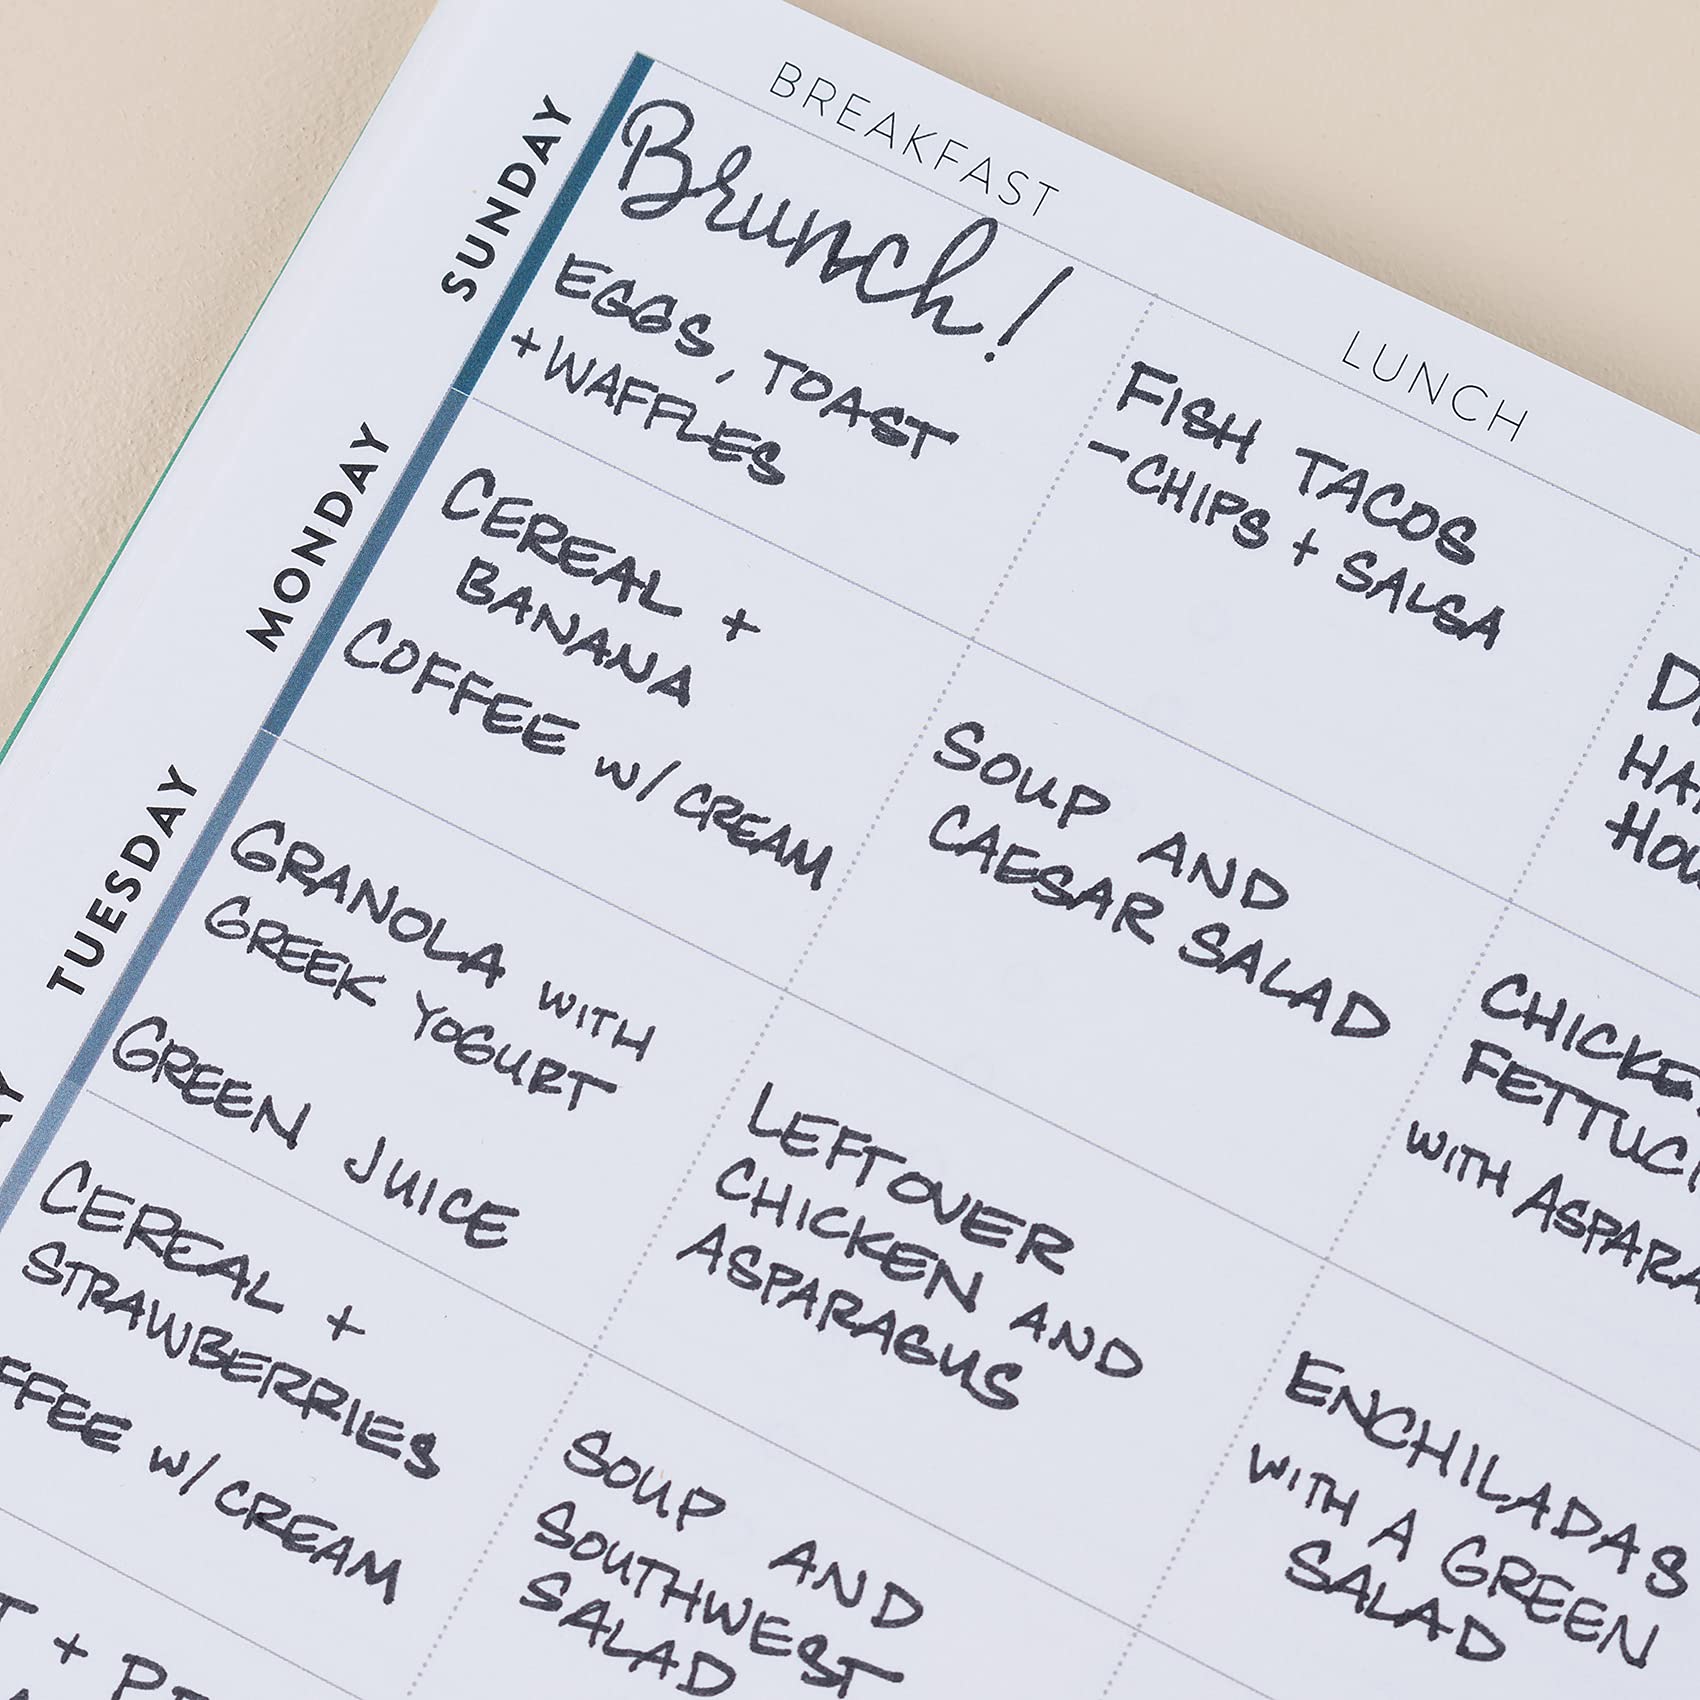 BREAKFAST
LUNCH
SUNDAY
Brunch!
EGGS, TOAST
+ WAFFLES
FISH TACOS
- CHIPS + SALSA
MONDAY
CEREAL +
BANANA
COFFEE w/ CREAM
SOUP AND
CAESAR SALAD
CHICKE
FETTUC
WITH ASPARA
TUESDAY
GRANOLA WITH
GREEK YOGURT
GREEN JUICE
LEFTOVER
CHICKEN AND
ASPARAGUS
ENCHILADAS
WITH A GREEN
SALAD
CEREAL +
STRAWBERRIES
FFEE w/ CREAM
SOUP AND
SOUTHWEST
SALAD